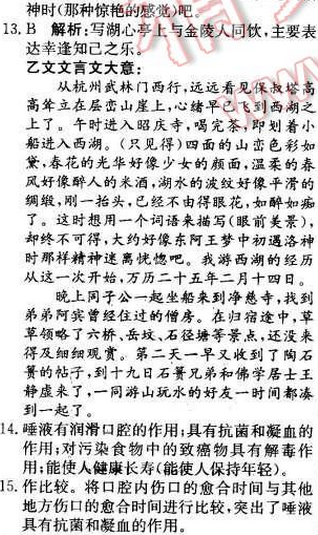 神时(那种惊艳的感觉)吧。
13. B 解析:写湖心亭上与金陵人同饮,主要表
达幸逢知己之乐。
乙文文言文大意:
从杭州武林门西行,远远看见保叔塔高
高耸立在层峦山崖上,心绪早已飞到西湖之
上了。午时进入昭庆寺,喝完茶,即划着小
船进入西湖。(只见得)四面的山峦色彩如
黛,春花的光华好像少女的颜面,温柔的春
风好像醉人的米酒,湖水的波纹好像平滑的
绸缎,刚一抬头,已经不由得眼花,如醉如痴
了。这时想用一个词语来描写(眼前美景),
却终不可得,大约好像东阿王梦中初遇洛神
时那样精神迷离恍惚吧。我游西湖的经历
从这一次开始,万历二十五年二月十四日。
晚上同子公一起坐船来到净慈寺,找到
弟弟阿宾曾经住过的僧房。在归宿途中,草
草领略了六桥、岳坟、石径塘等景点,还没来
得及细细观赏。第二天一早又收到了陶石
篑的帖子,到十九日石篑兄弟和佛学居士王
静虚来了,一同游山玩水的好友一时间都凑
到一起了。
14. 唾液有润滑口腔的作用;具有抗菌和凝血的
作用;对污染食物中的致癌物具有解毒作
用;能使人健康长寿(能使人保持年轻)。
15. 作比较。将口腔内伤口的愈合时间与其他
地方伤口的愈合时间进行比较,突出了唾液
具有抗菌和凝血的作用。